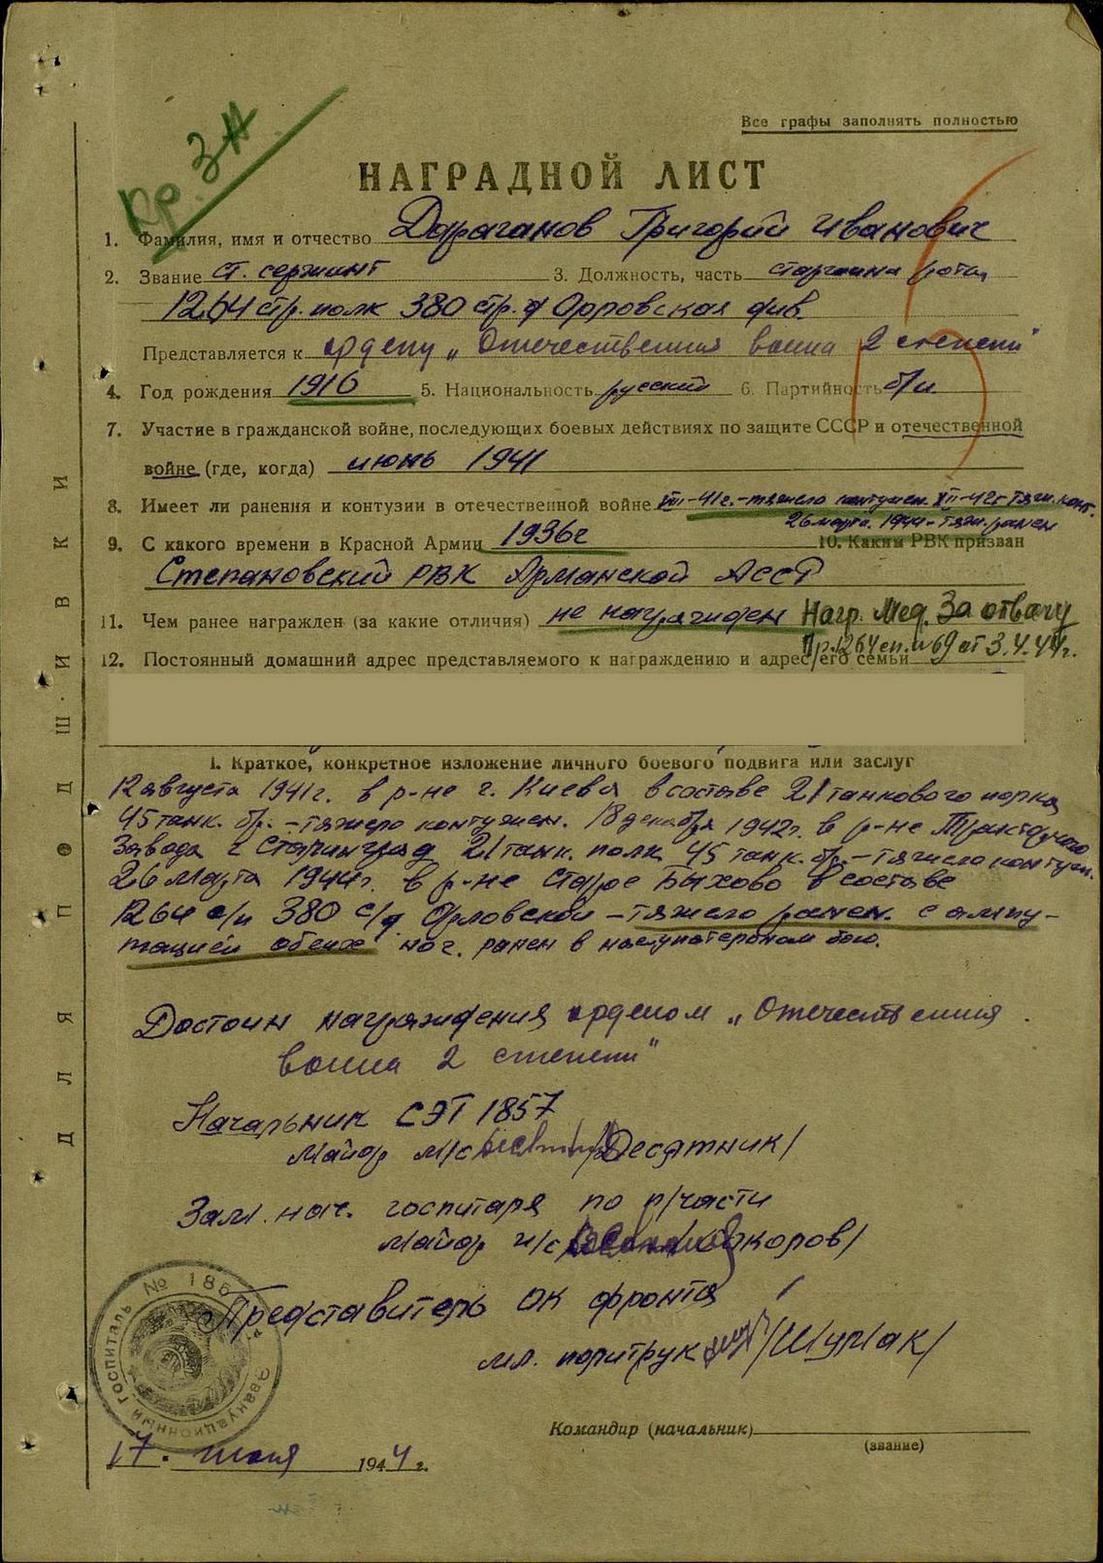 Кр. ЗН
Все графы заполнять полностью
НАГРАДНОЙ ЛИСТ
1. Фамилия, имя и отчество Дараганов Григорий Иванович
2. Звание ст. сержант 3. Должность, часть старшина роты
1264 стр. полк 380 стр. д Орловская див.
Представляется к ордену „Отечественная война 2 степени"
4. Год рождения 1916 5. Национальность русский 6. Партийность б/п.
7. Участие в гражданской войне, последующих боевых действиях по защите СССР и отечественной
войне (где, когда) июнь 1941
8. Имеет ли ранения и контузии в отечественной войне VIII-41г.-тяжело контужен. XII-42г тяж. конт.
26 марта 1944- тяж. ранен
9. С какого времени в Красной Армии 1936г 10. Каким РВК призван
Степановский РВК АССР
11. Чем ранее награжден (за какие отличия) не награжден Нагр. Мед. За отвагу
Пр. 1264 сп. №69 от 3.4.44г.
12. Постоянный домашний адрес представляемого к награждению и адрес его семьи
I. Краткое, конкретное изложение личного боевого подвига или заслуг
12 августа 1941г. в р-не г. Киева в составе 21 танкового полка
45 танк. бр. -тяжело контужен. 18 декабря 1942г. в р-не Тракторного
Завода г Сталинград 21 танк. полк 45 танк. бр.-тяжело контуж.
26 Марта 1944г. в р-не Старое Быхово в составе
1264 с/п 380 с/д Орловской -тяжело ранен. с ампу-
тацией обеих ног. ранен в наступательном бою.
Достоин награждения орденом „Отечественная
война 2 степени"
Начальник СЭГ 1857
майор м/с /Десятник/
Зам. нач. госпиталя по п/части
майор
Представитель ОК фронта
мл. политрук /Шумак/
Эвакуационный госпиталь №
Командир (начальник)
(звание)
17. июля 1944 г.
ДЛЯ ПОДШИВКИ